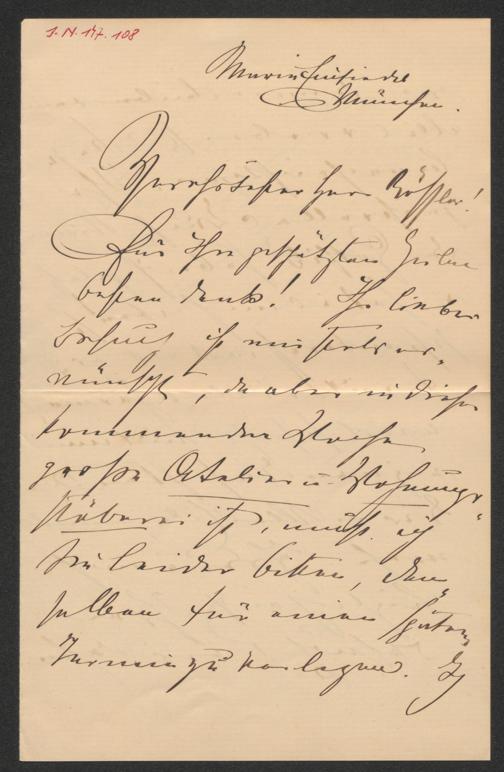 I. N. 147.108
Maria Einsiedel
München.
Verehrtester Herr Rössler!
Für Ihre geschätzten Zeilen
besten Dank! Ihr lieber
Besuch ist mir stets er-
wünscht, da aber in dieser
kommenden Woche
große Atelier u. Wohnungs-
stöberei ist, muß ich
Sie leider bitten, den-
selben für einen späteren
Termin zu verlegen.